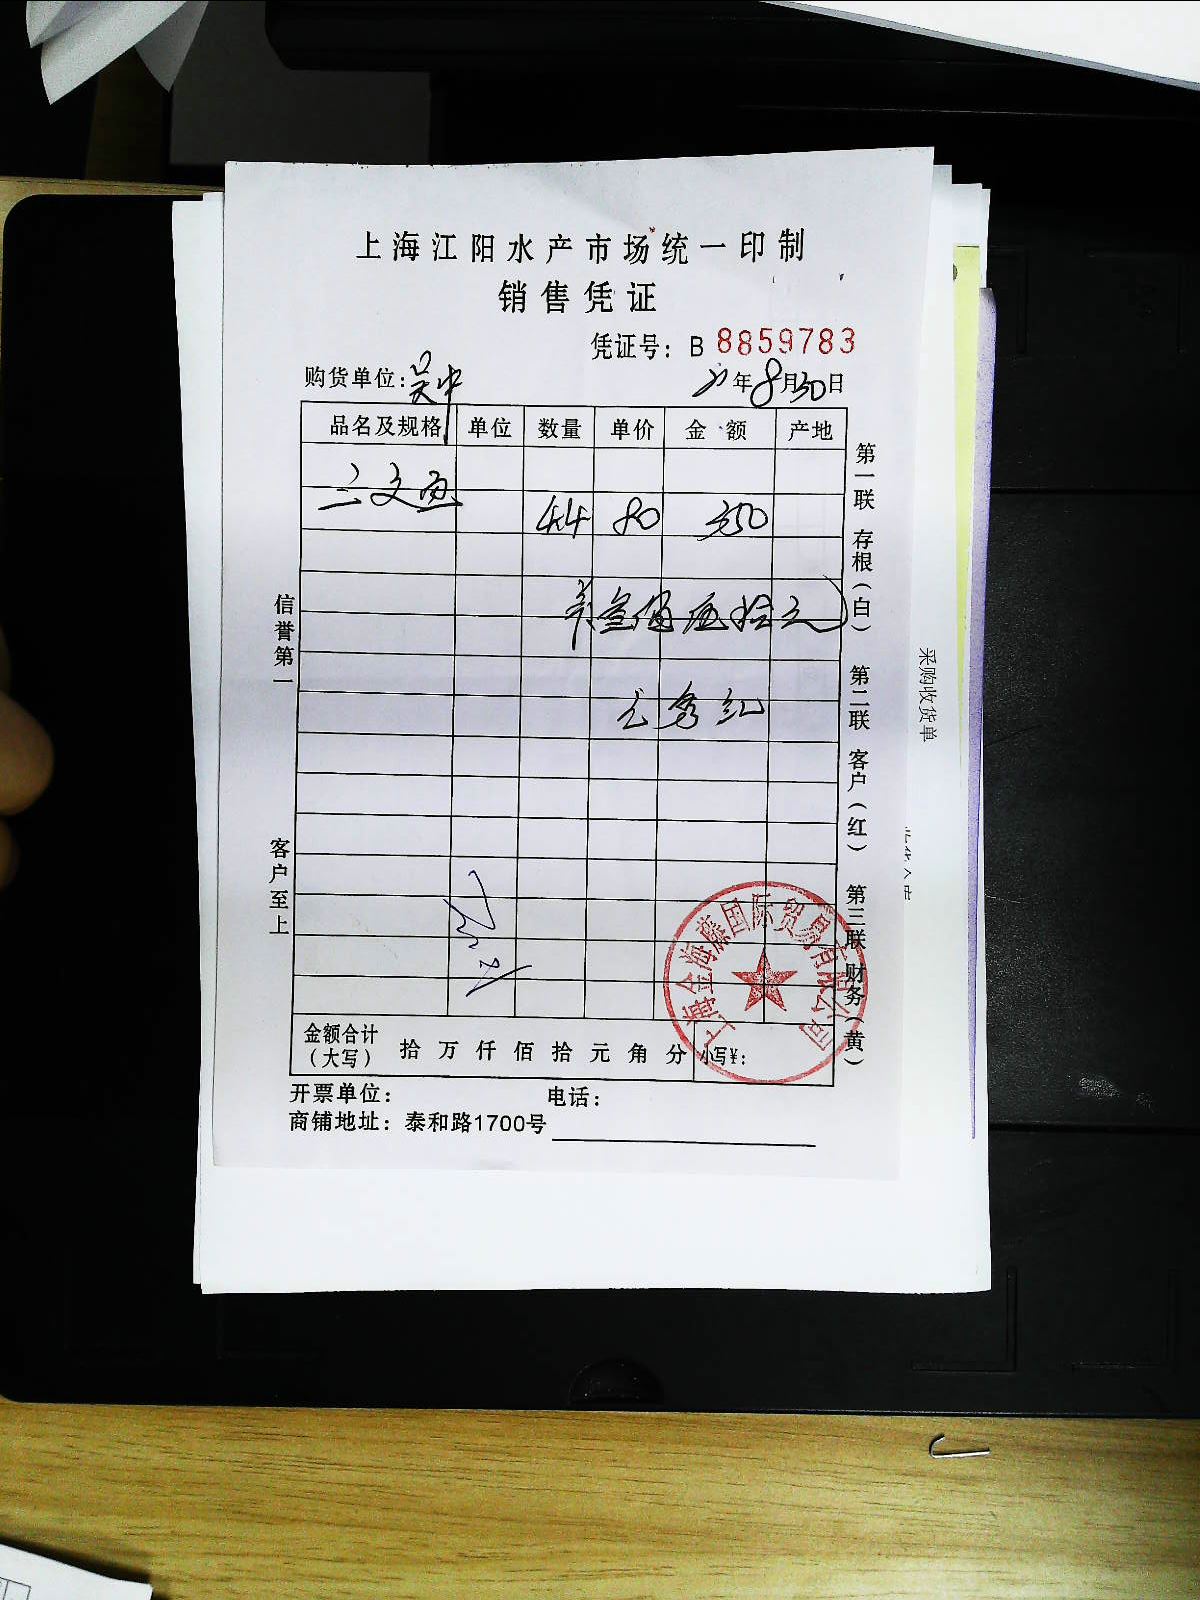 上海江阳水产市场统一印制
销售凭证
凭证号：B 8859783
购货单位：吴中
年8月30日
品名及规格 单位 数量 单价 金额 产地
三文鱼
4.4 80 350
叁佰伍拾元
信誉第一
客户至上
第一联 存根（白） 第二联 客户（红） 第三联 财务（黄）
采购收货单
上海金海藤国际贸易有限公司
金额合计（大写） 拾万仟佰拾元角分 小写¥：
开票单位： 电话：
商铺地址：泰和路1700号